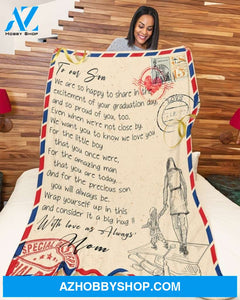 HOBBY SHOP
To our Son
We are so happy to share in the
excitement of your graduation day,
and so proud of you, too.
Even when we're not close by.
We want you to know we love you
For the little boy
that you once were,
For the amazing man
that you are today...
and for the precious son
you will always be.
Wrap yourself up in this
and consider it a big hug !!
With love as Always
Mom
SPECIAL
AZHOBBYSHOP.COM